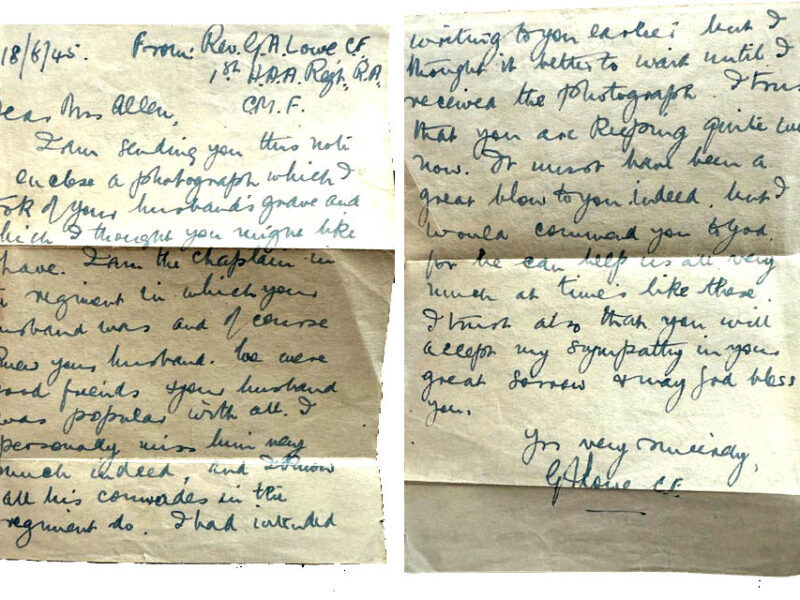 18/6/45. From: Rev. G.A. Lowe C.F.
1st H.A.A. Regt. R.A.
C.M.F.
ear Mrs Allen,
I am sending you this note
enclose a photograph which I
ok of your husband's grave and
hich I thought you might like
have. I am the chaplain in
regiment in which your
usband was and of course
knew your husband. We were
ood friends & your husband
was popular with all. I
personally miss him very
much indeed, and I know
all his comrades in the
regiment do. I had intended
writing to you earlier but I
thought it better to wait until I
received the photograph. I trus
that you are keeping quite we
now. It must have been a
great blow to you indeed, but I
would commend you to God
for he can help us all very
much at times like these.
I trust also that you will
accept my sympathy in your
great sorrow & may God bless
you.
Yrs very sincerely,
G A Lowe C.F.